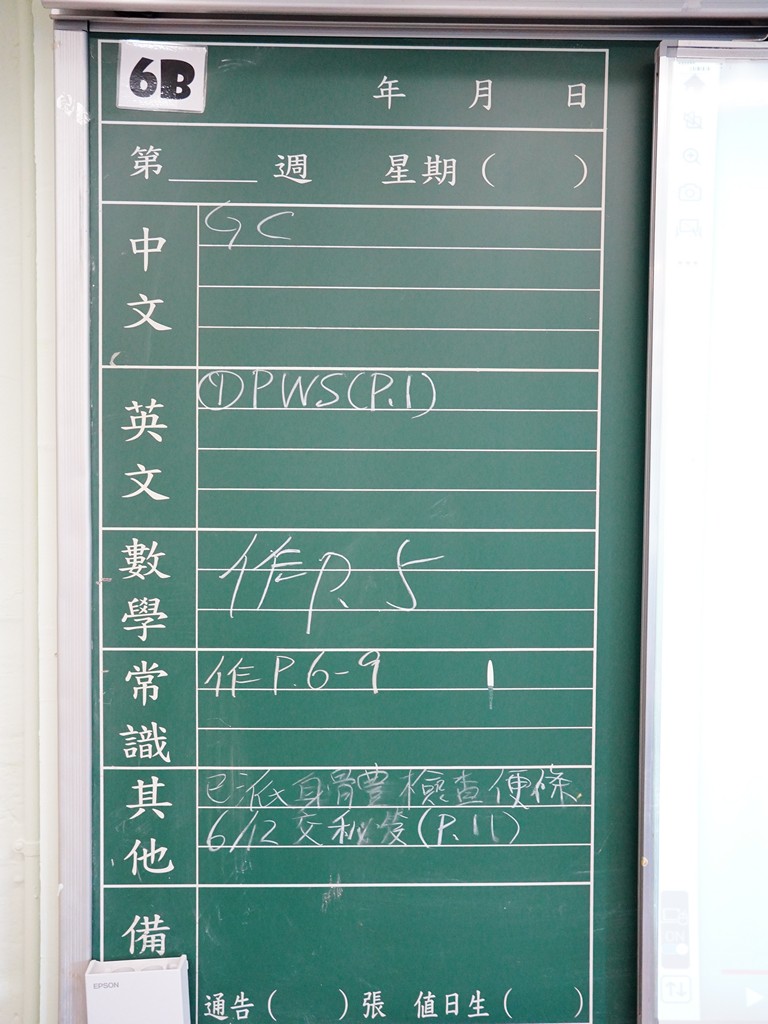 6B
年 月 日
第____週 星期( )
中文
GC
英文
①PWS(P.1)
數學
作P.5
常識
作P.6-9
其他
已派身體檢查便條
6/12 交秘笈(P.11)
備
EPSON
通告( )張 值日生( )